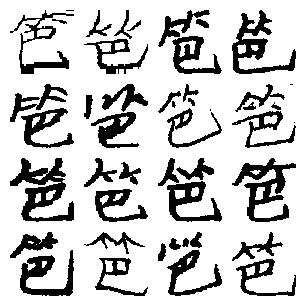 笆笆笆笆
笆笆笆笆
笆笆笆笆
笆笆笆笆